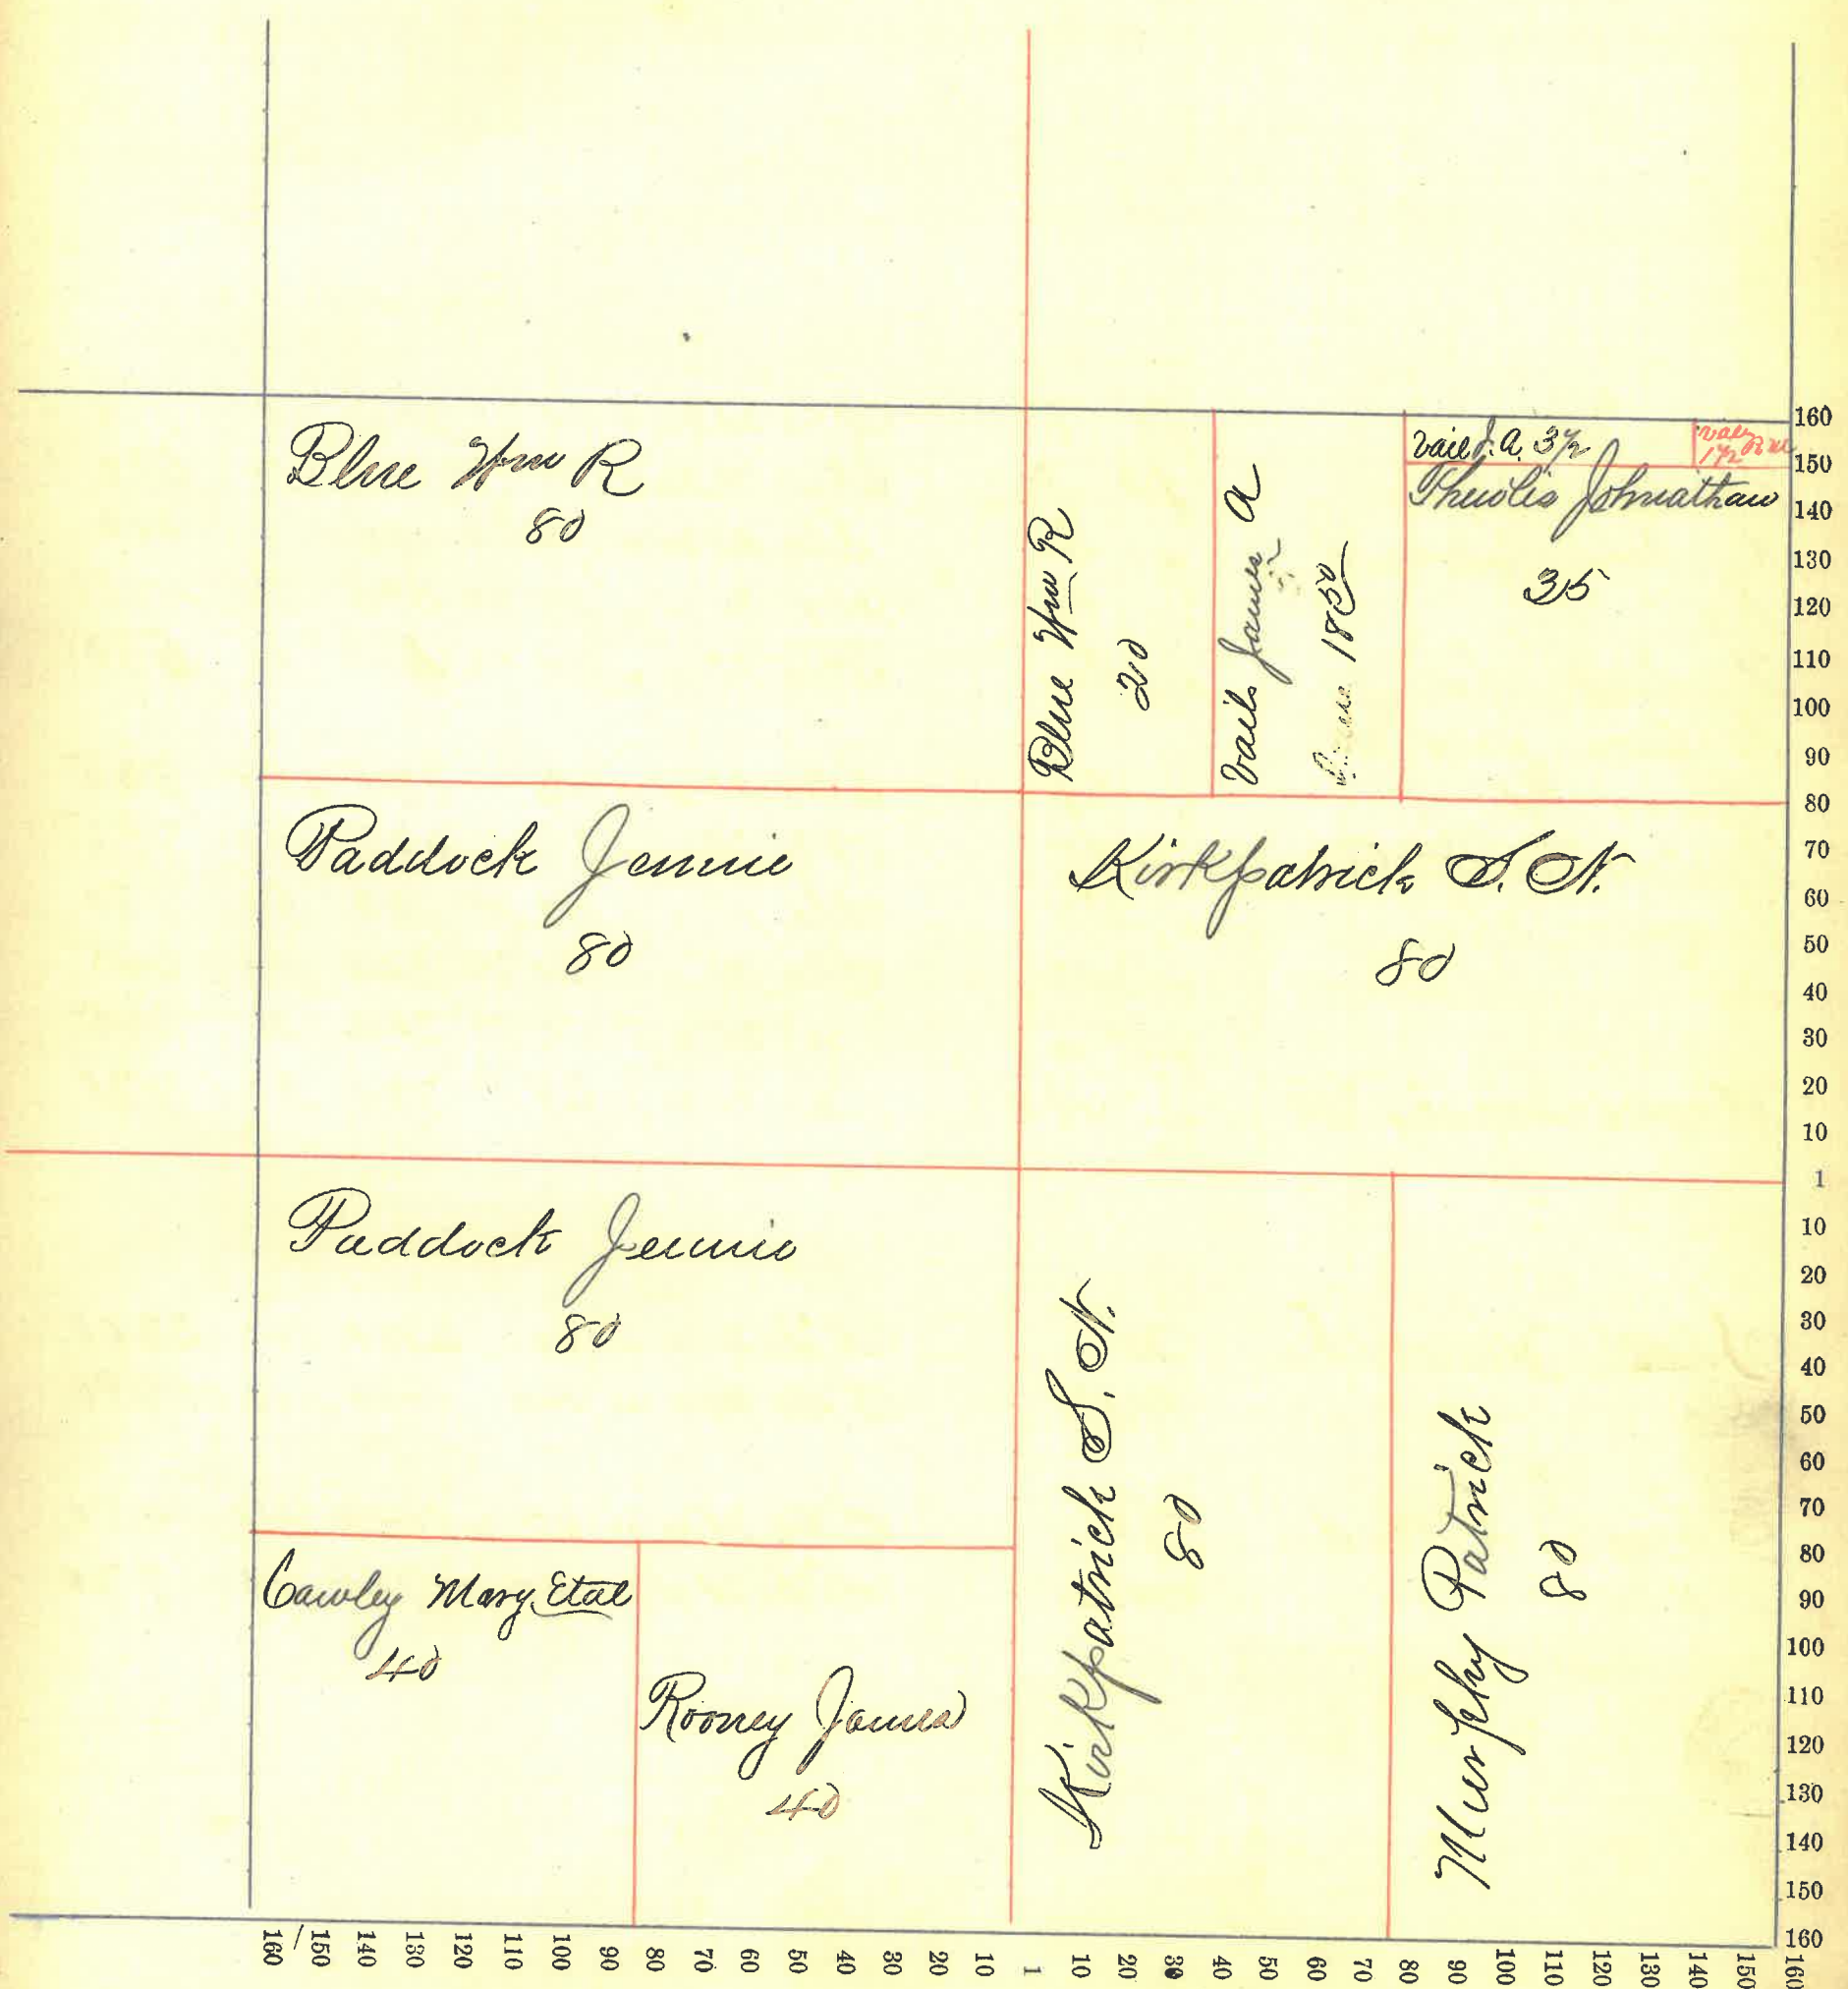 Blue Wm R
80
Blue Wm R
20
Vail James A
18 50
Vail J. A. 3 1/2
1 1/2
Johnathan
35
Paddock Jennie
80
Kirkpatrick S. N.
80
Paddock Jennie
80
Kirkpatrick S. N.
80
Murphy Patrick
80
Cawley Mary Etal
40
Rooney James
40
160
150
140
130
120
110
100
90
80
70
60
50
40
30
20
10
1
10
20
30
40
50
60
70
80
90
100
110
120
130
140
150
160
160 150 140 130 120 110 100 90 80 70 60 50 40 30 20 10 1 10 20 30 40 50 60 70 80 90 100 110 120 130 140 150 160